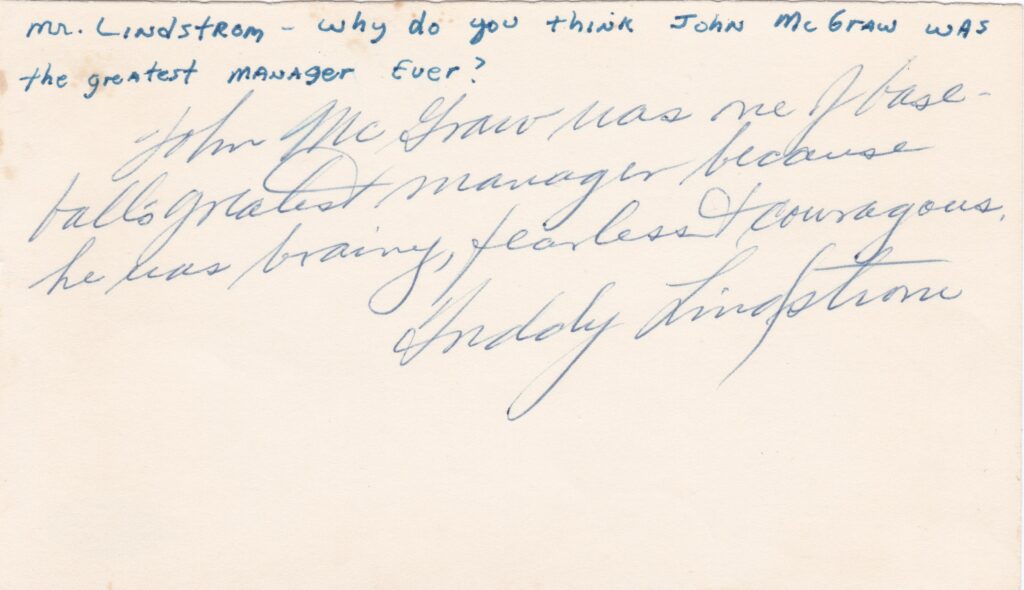 Mr. Lindstrom - Why do you think John McGraw was
the greatest manager ever?
John McGraw was one of base-
ball's greatest manager because
he was brainy, fearless & couragous.
Freddy Lindstrom